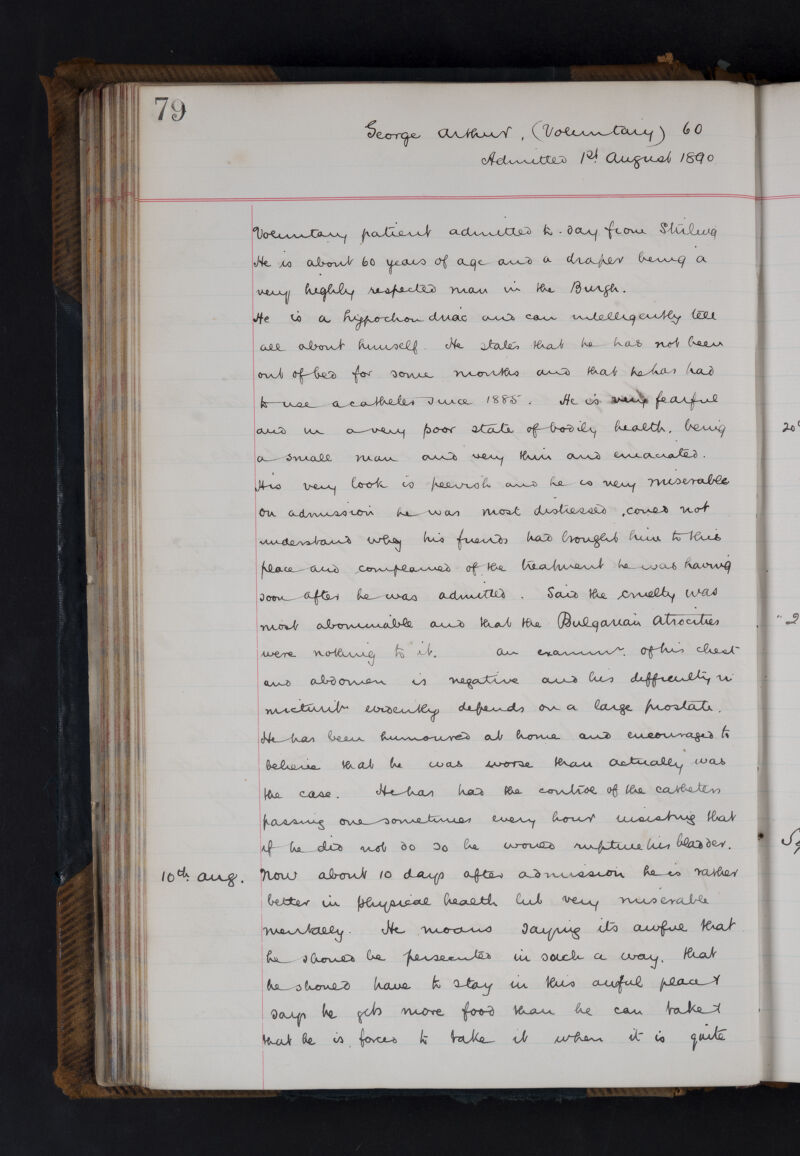 79
George Arthur, (Voluntary) 60
Admitted 1st August 1890
Voluntary patient admitted to-day from Stirling
He is about 60 years of age and a draper being a
very highly respected man in the Burgh.
He is a hypochondriac and can intelligently tell
all about himself. He states that he has not been
out of bed for some months and that he has had
to use a catheter since 1885. He is very fearful
and in a very poor state of bodily health, being
a small man and very thin and emaciated.
His very look is peevish and he is very miserable
On admission he was most distressed, could not
understand why his friends had brought him to this
place and complained of the treatment he was having
soon after he was admitted. Said the cruelty was
most abominable and that the Bulgarian Atrocities
were nothing to it. An examinn. of his chest
and abdomen is negative and his difficulty in
micturitn evidently depends on a large prostate.
He has been humoured at home and encouraged to
believe that he was worse than actually was
the case. He has had the control of the catheters
passing one sometimes every hour insisting that
if he did not do so he would rupture his bladder.
10th Aug. Now about 10 days after admission he is rather
better in physical health but very miserable
mentally. He moans saying its awful that
he should be persecuted in such a way, that
he should have to stay in this awful place &
says he gets more food than he can take &
that he is forced to take it when it is quite
20
"2